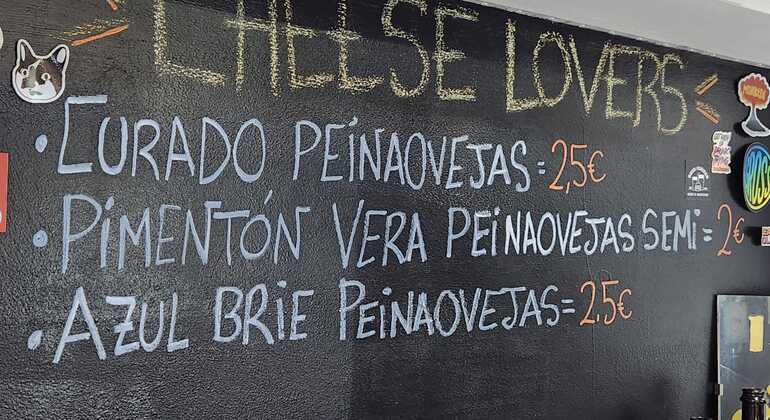 CHEESE LOVERS
• CURADO PEINAOVEJAS = 2,5€
• PIMENTÓN VERA PEINAOVEJAS SEMI = 2€
• AZUL BRIE PEINAOVEJAS = 2.5€